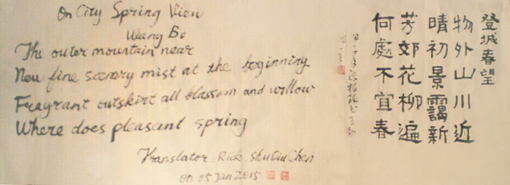 On City Spring View
Wang Bo
The outer mountain near
New fine scenery mist at the beginning
Fragrant outskirt all blossom and willow
Where does pleasant spring
Translator Rick Shutin Chen
on 05 Jan 2015
登城春望
物外山川近
晴初景靄新
芳郊花柳遍
何處不宜春